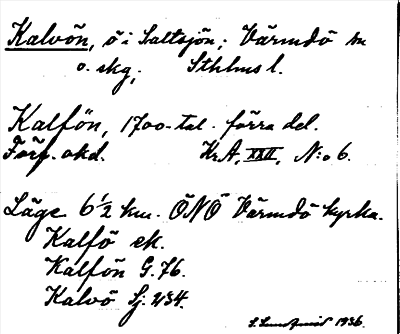 Kalvön, ö i Saltsjön; Värmdö sn
o. skg, Sthlms l.
Kalfön, 1700-tal. förra del.
Förf. okd. Kr.A, XXII, N:o 6.
Läge 6 1/2 km. ÖNÖ Värmdö kyrka.
Kalfö ek.
Kalfön G. 76.
Kalvö Sj. 234.
1936